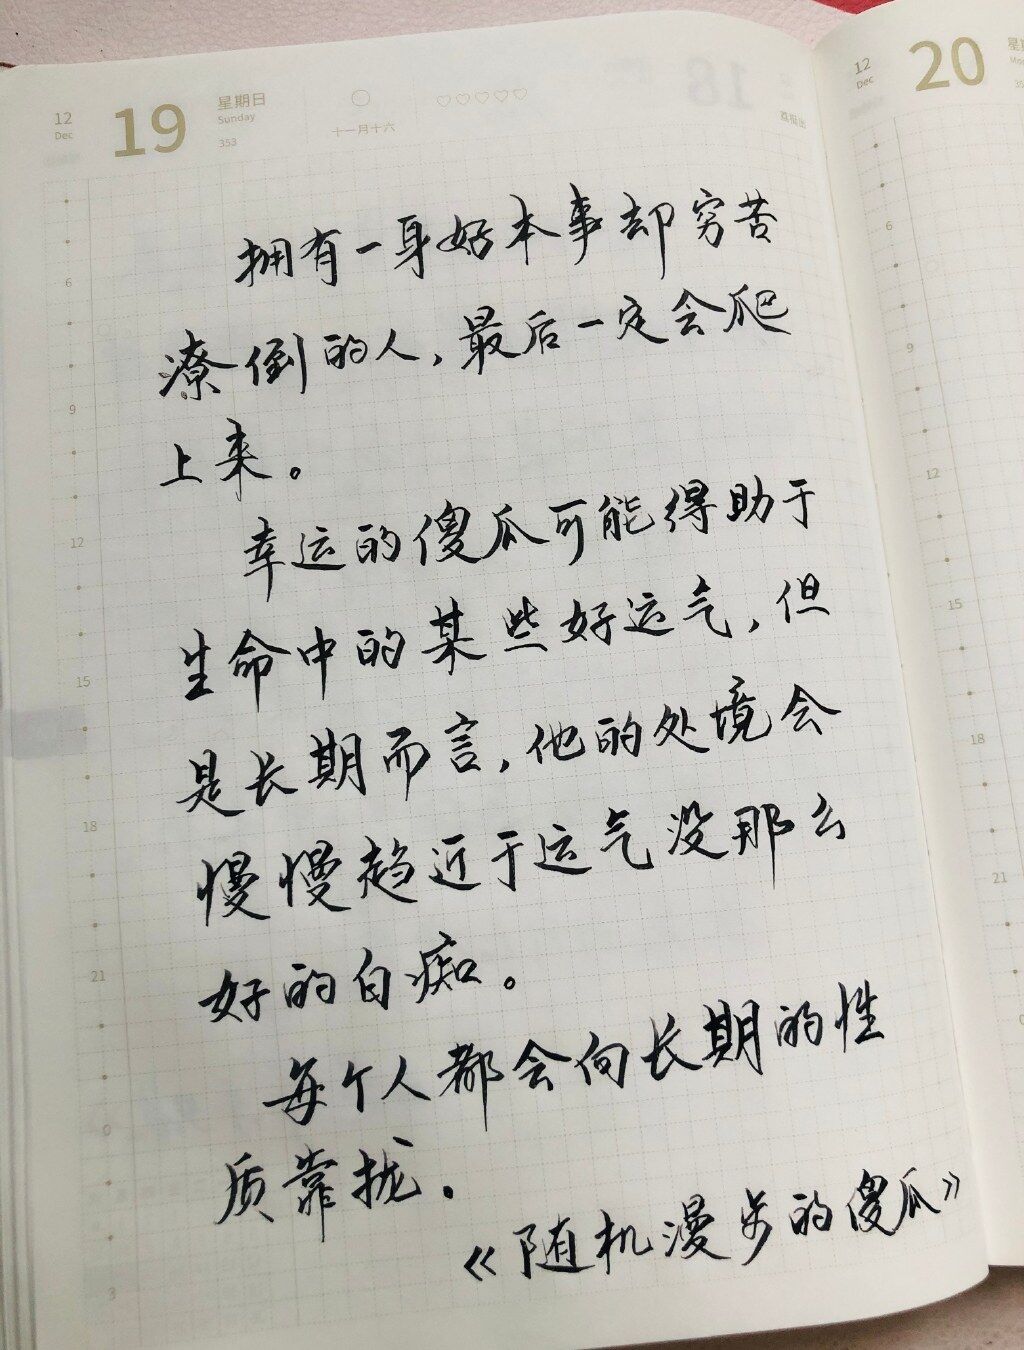 12
Dec
19
星期日
Sunday
353
十一月十六
18
12
Dec
20
拥有一身好本事却穷苦
潦倒的人,最后一定会爬
上来。
幸运的傻瓜可能得助于
生命中的某些好运气,但
是长期而言,他的处境会
慢慢趋近于运气没那么
好的白痴。
每个人都会向长期的性
质靠拢.
《随机漫步的傻瓜》
6
9
12
15
18
21
0
3
6
9
12
15
18
21